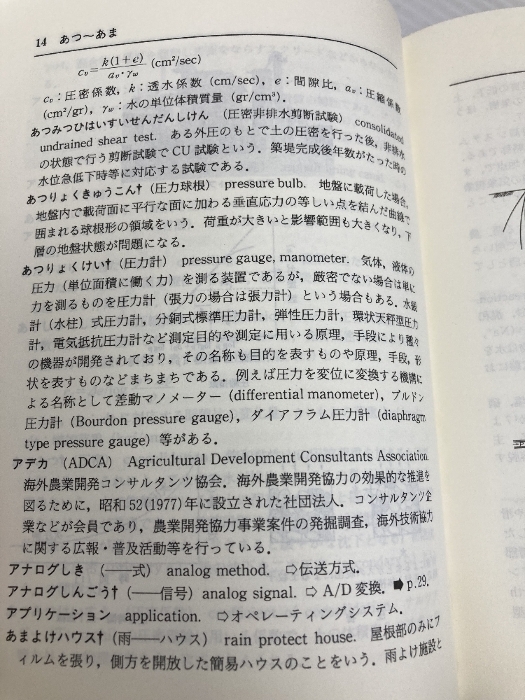 14 あつ～あま
c_v = k(1+e) / a_v・γ_w (cm²/sec)
c_v：圧密係数，k：透水係数 (cm/sec)，e：間隙比，a_v：圧縮係数
(cm²/gr)，γ_w：水の単位体積質量 (gr/cm³)．
あつみつひはいすいせんだんしけん （圧密非排水剪断試験） consolidated
undrained shear test. ある外圧のもとで土の圧密を行った後，非排水
の状態で行う剪断試験で CU 試験という．築堤完成後年数がたった時の
水位急低下時等に対応する試験である．
あつりょくきゅうこん†（圧力球根） pressure bulb. 地盤に載荷した場合，
地盤内で載荷面に平行な面に加わる垂直応力の等しい点を結んだ曲線で
囲まれる球根形の領域をいう．荷重が大きいと影響範囲も大きくなり，下
層の地盤状態が問題になる．
あつりょくけい†（圧力計） pressure gauge, manometer. 気体，液体の
圧力（単位面積に働く力）を測る装置であるが，厳密でない場合は単に
力を測るものを圧力計（張力の場合は張力計）という場合もある．水銀
計（水柱）式圧力計，分銅式標準圧力計，弾性圧力計，環状天秤型圧力
計，電気抵抗圧力計など測定目的や測定に用いる原理，手段により種々
の機器が開発されており，その名称も目的を表すものや原理，手段，形
状を表すものなどまちまちである．例えば圧力を変位に変換する機構に
よる名称として差動マノメーター (differential manometer)，ブルドン
圧力計 (Bourdon pressure gauge)，ダイアフラム圧力計 (diaphragm
type pressure gauge) 等がある．
アデカ （ADCA） Agricultural Development Consultants Association.
海外農業開発コンサルタンツ協会．海外農業開発協力の効果的な推進を
図るために，昭和 52 (1977) 年に設立された社団法人．コンサルタンツ企
業などが会員であり，農業開発協力事業案件の発掘調査，海外技術協力
に関する広報・普及活動等を行っている．
アナログしき （――式） analog method. ⇨伝送方式．
アナログしんごう†（――信号） analog signal. ⇨ A/D 変換．➡p.29.
アプリケーション application. ⇨オペレーティングシステム．
あまよけハウス†（雨――ハウス） rain protect house. 屋根部のみにフ
ィルムを張り，側方を開放した簡易ハウスのことをいう．雨よけ施設と